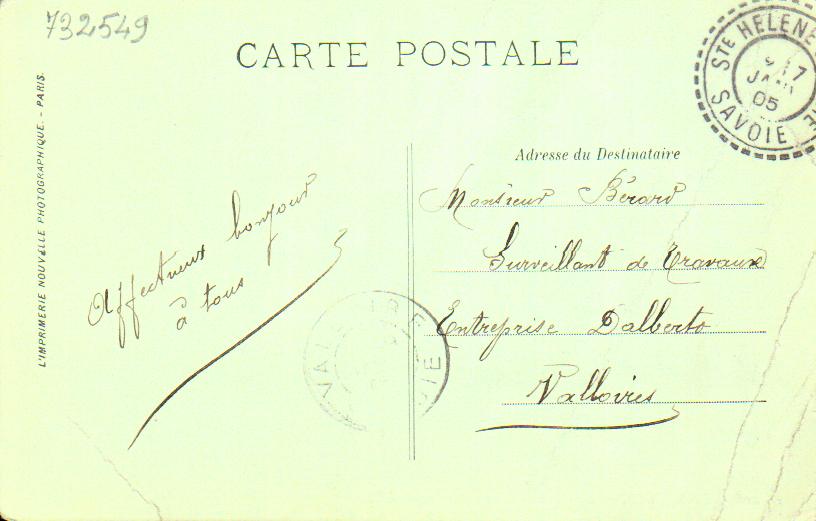 732549
CARTE POSTALE
STE HELENE
17
JANV
05
SAVOIE
L'IMPRIMERIE NOUVELLE PHOTOGRAPHIQUE. - PARIS.
Adresse du Destinataire
Affectueux bonjour
à tous
Monsieur Bérard
Surveillant de Travaux
Entreprise Dalberto
Valloires